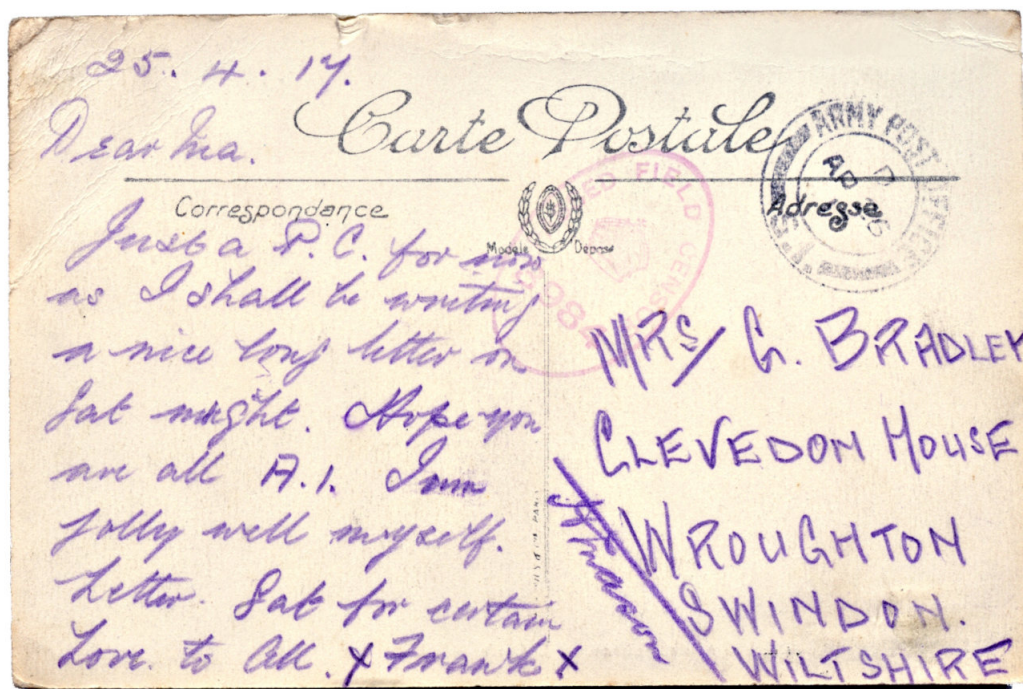 25. 4. 17.
Dear Ma.
Carte Postale
Correspondance
Adresse
Modele Depose
ARMY POST OFFICE
AP 26
FIELD CENSOR
Just a P.C. for now
as I shall be writing
a nice long letter on
Sat night. Hope you
are all A.1. I am
jolly well myself.
Letter. Sat for certain
Love. to All. x Frank x
MRS/ G. BRADLEY
CLEVEDON HOUSE
WROUGHTON
SWINDON.
WILTSHIRE